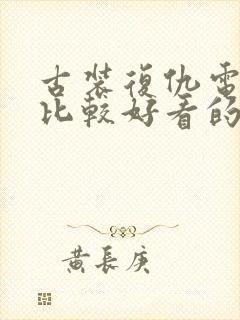 古装復仇電
比較好看的
黄長庚